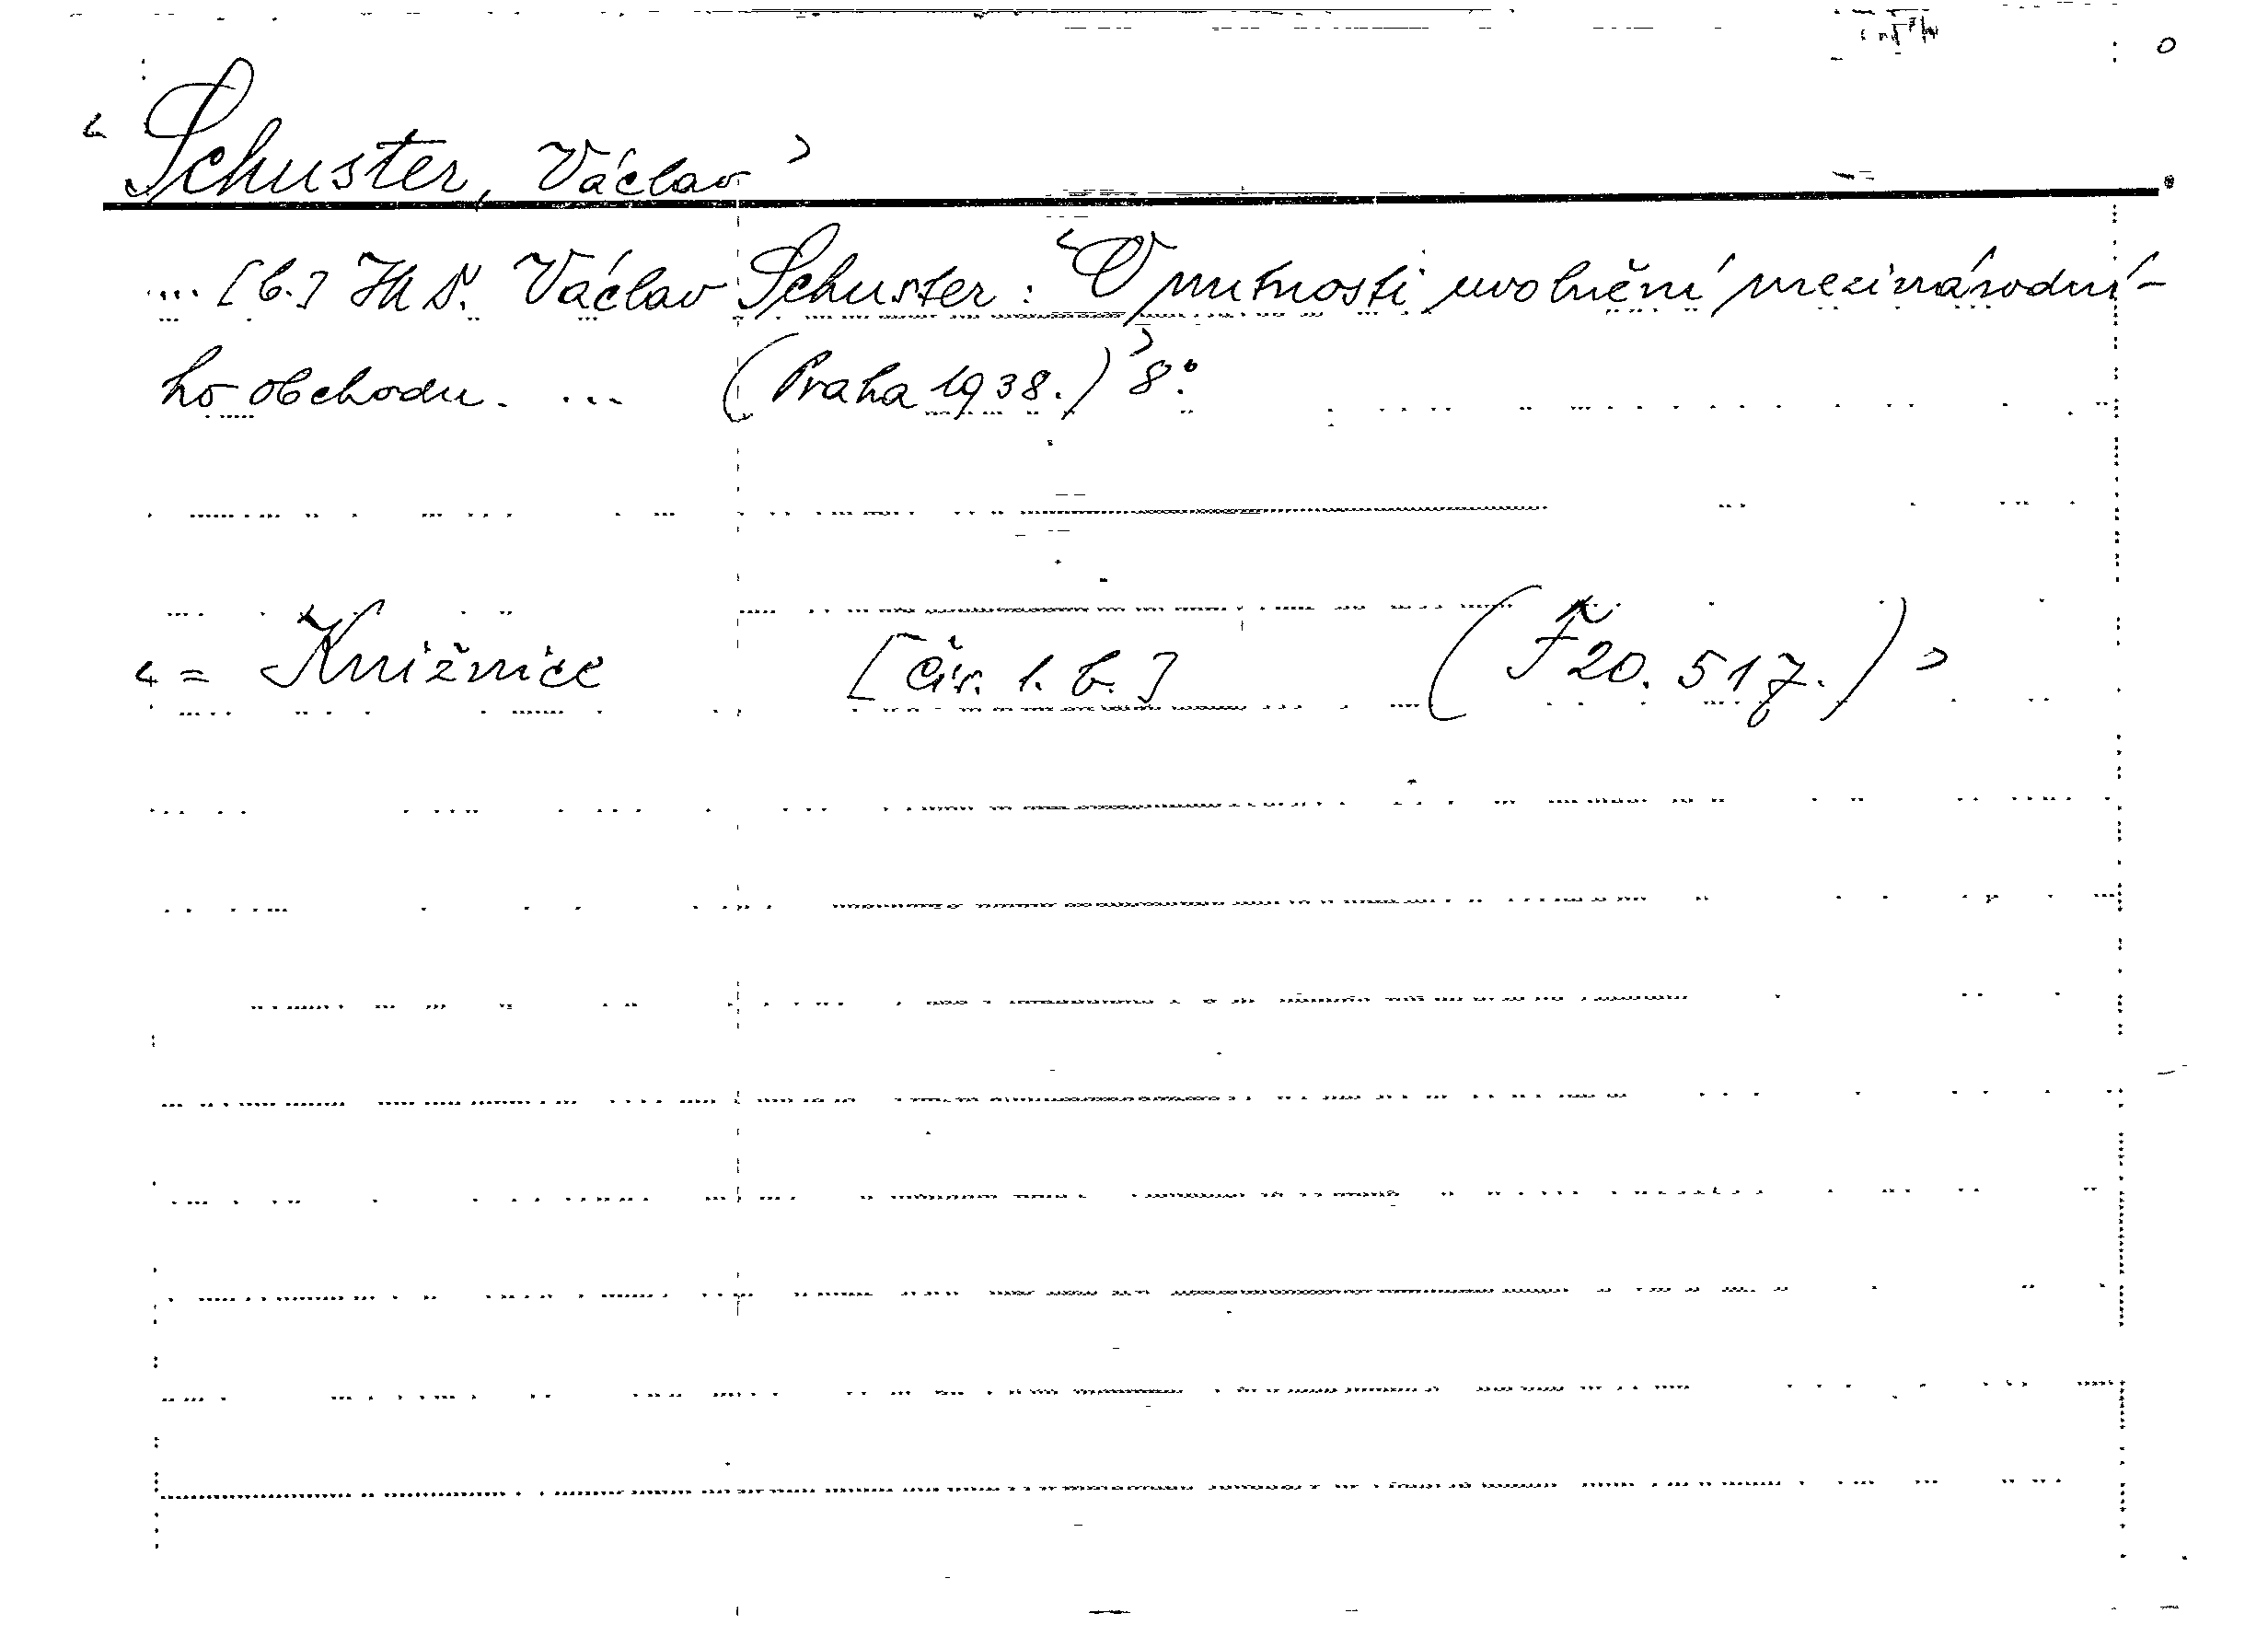 Schuster, Václav
... [b.] Th Dr. Václav Schuster: O nutnosti uvolnění mezinárodní-
ho obchodu. ... (Praha 1938.) 8°.
= Knižnice [Čís. 1. b.] (F 20.517.)